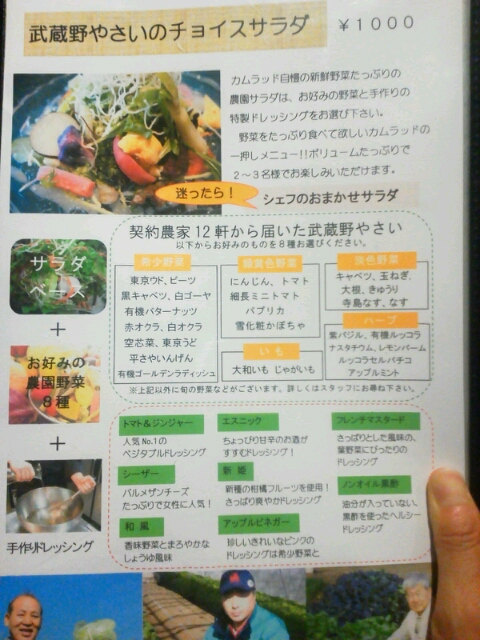 武蔵野やさいのチョイスサラダ ￥1000
カムラッド自慢の新鮮野菜たっぷりの
農園サラダは、お好みの野菜と手作りの
特製ドレッシングをお選び下さい。
野菜をたっぷり食べて欲しいカムラッドの
一押しメニュー!!ボリュームたっぷりで
2～3名様でお楽しみいただけます。
迷ったら！
シェフのおまかせサラダ
契約農家12軒から届いた武蔵野やさい
以下からお好みのものを8種お選びください。
サラダ
ベース
+
お好みの
農園野菜
8種
+
手作りドレッシング
希少野菜
東京ウド、ビーツ
黒キャベツ、白ゴーヤ
有機バターナッツ
赤オクラ、白オクラ
空芯菜、東京うど
平さやいんげん
有機ゴールデンラディッシュ
緑黄色野菜
にんじん、トマト
細長ミニトマト
パプリカ
雪化粧かぼちゃ
いも
大和いも じゃがいも
淡色野菜
キャベツ、玉ねぎ、
大根、きゅうり
寺島なす、なす
ハーブ
紫バジル、有機ルッコラ
ナスタチウム、レモンバーム
ルッコラセルバチコ
アップルミント
※上記以外に旬の野菜などがございます。詳しくはスタッフにお尋ね下さい。
トマト&ジンジャー
人気No.1の
ベジタブルドレッシング
シーザー
パルメザンチーズ
たっぷりで女性に人気！
和風
香味野菜とまろやかな
しょうゆ風味
エスニック
ちょっぴり甘辛のお酒が
すすむドレッシング！
新姫
新種の柑橘フルーツを使用！
さっぱり爽やかドレッシング
アップルビネガー
珍しいきれいなピンクの
ドレッシングは希少野菜と
フレンチマスタード
さっぱりとした風味の、
葉野菜にぴったりの
ドレッシング
ノンオイル黒酢
油分が入っていない、
黒酢を使ったヘルシー
ドレッシング